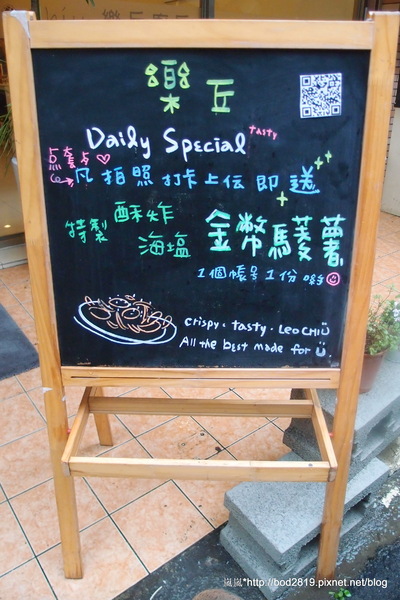 樂丘
Daily Special tasty
点套点♡
凡拍照打卡上伝即送
特製 酥炸 海塩 金幣馬菱薯
1個帳号1份喲
crispy. tasty. LEOCHIU
All the best made for U.
嵐嵐*http://bod2819.pixnet.net/blog